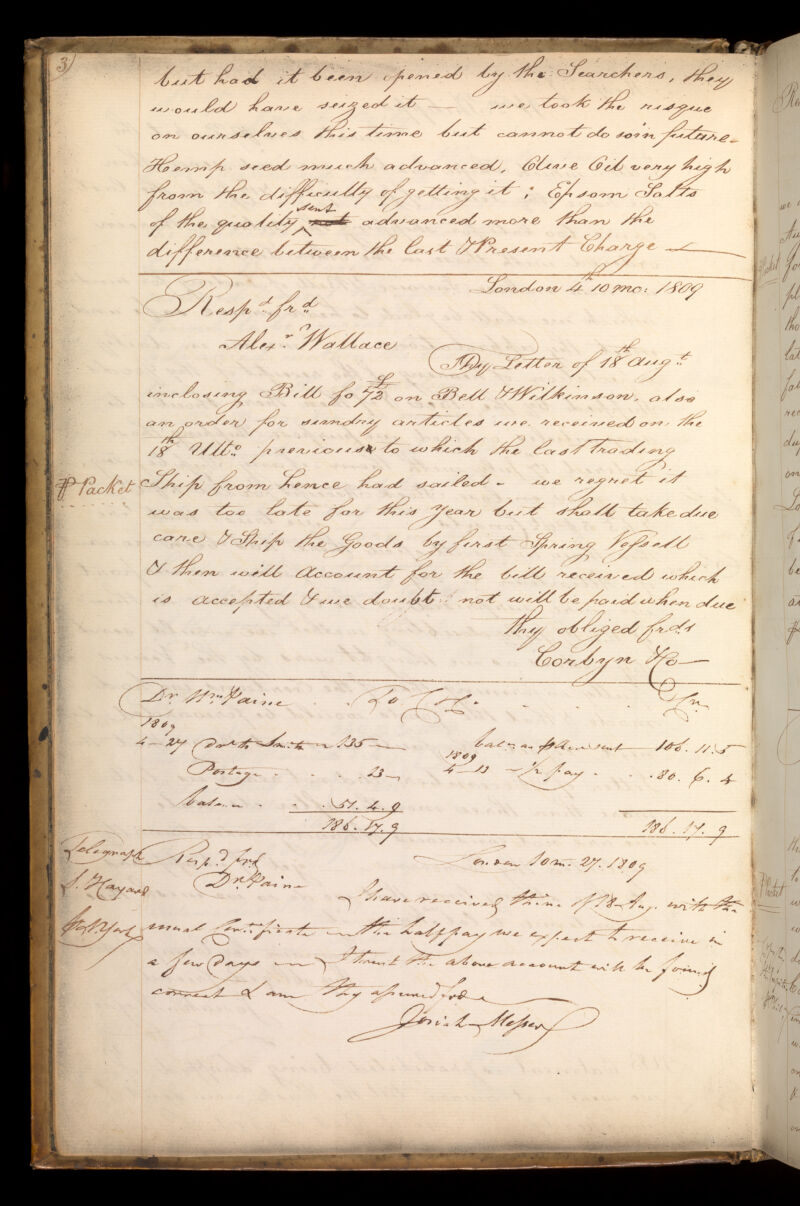 3
but had it been opened by the Searchers, they
would have seized it — we took the risque
on ourselves this time but cannot do so in future –
Hemp seed much advanced, Olive Oil very high
from the difficulty of getting it ; Epsom Salts
of the quality sent advanced more than the
difference between the last & Present Charge —
London 4th 10 mo: 1809
Respd. frd.
Alexr. Wallace
Thy Letter of 18th Augt.
inclosing Bill fo £72 on Bell & Wilkinson, also
an order for sundry articles we received on the
18th Ulto. previous to which the last trading
Ship from hence had sailed – we regret it
℔ Packet
was too late for this Year but shall take due
care & Ship the Goods by first Spring Vessell
& then will account for the bill received which
is accepted & we doubt not will be paid when due
thy obliged frds
Corbyn & Co —
Dr. Wm. Paine . . To . . . Cr.
1809
4 – 27 Smith 135 —
106. 11. 5
Postage . . . . . 23 —
1809
4 – 13 – ½ pay . . . 80. 6. 4
balance . . . 51. 4. 9
186. 17. 9
186. 17. 9
Telegraph
Respd. frd
London 10 m. 27. 1809
Dr. Paine
I have received thine of 18 Aug. with the
usual Certificate the half pay we expect to receive in
N. York
a few Days I trust the above account will be found
correct & am thy assured frd
Josiah Messer